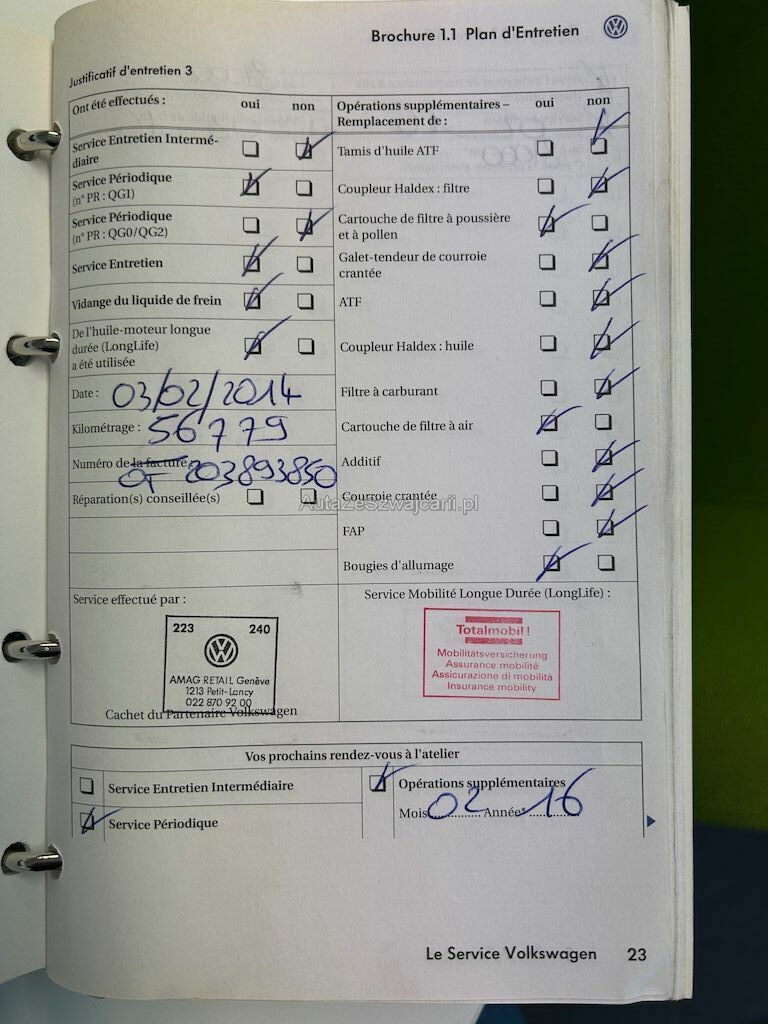 Brochure 1.1 Plan d'Entretien
Justificatif d'entretien 3
Ont été effectués : oui non
Service Entretien Intermé-
diaire
Service Périodique
(n° PR : QG1)
Service Périodique
(n° PR : QG0/QG2)
Service Entretien
Vidange du liquide de frein
De l'huile-moteur longue
durée (LongLife)
a été utilisée
Date : 03/02/2014
Kilométrage : 56779
Numéro de la facture :
OT 203893850
Réparation(s) conseillée(s)
Opérations supplémentaires – oui non
Remplacement de :
Tamis d'huile ATF
Coupleur Haldex : filtre
Cartouche de filtre à poussière
et à pollen
Galet-tendeur de courroie
crantée
ATF
Coupleur Haldex : huile
Filtre à carburant
Cartouche de filtre à air
Additif
Courroie crantée
FAP
Bougies d'allumage
AutaZeSzwajcarii.pl
Service effectué par :
223 240
AMAG RETAIL Genève
1213 Petit-Lancy
022 870 92 00
Cachet du Partenaire Volkswagen
Service Mobilité Longue Durée (LongLife) :
Totalmobil!
Mobilitätsversicherung
Assurance mobilité
Assicurazione di mobilità
Insurance mobility
Vos prochains rendez-vous à l'atelier
Service Entretien Intermédiaire
Service Périodique
Opérations supplémentaires
Mois 02 Année* 16
Le Service Volkswagen 23